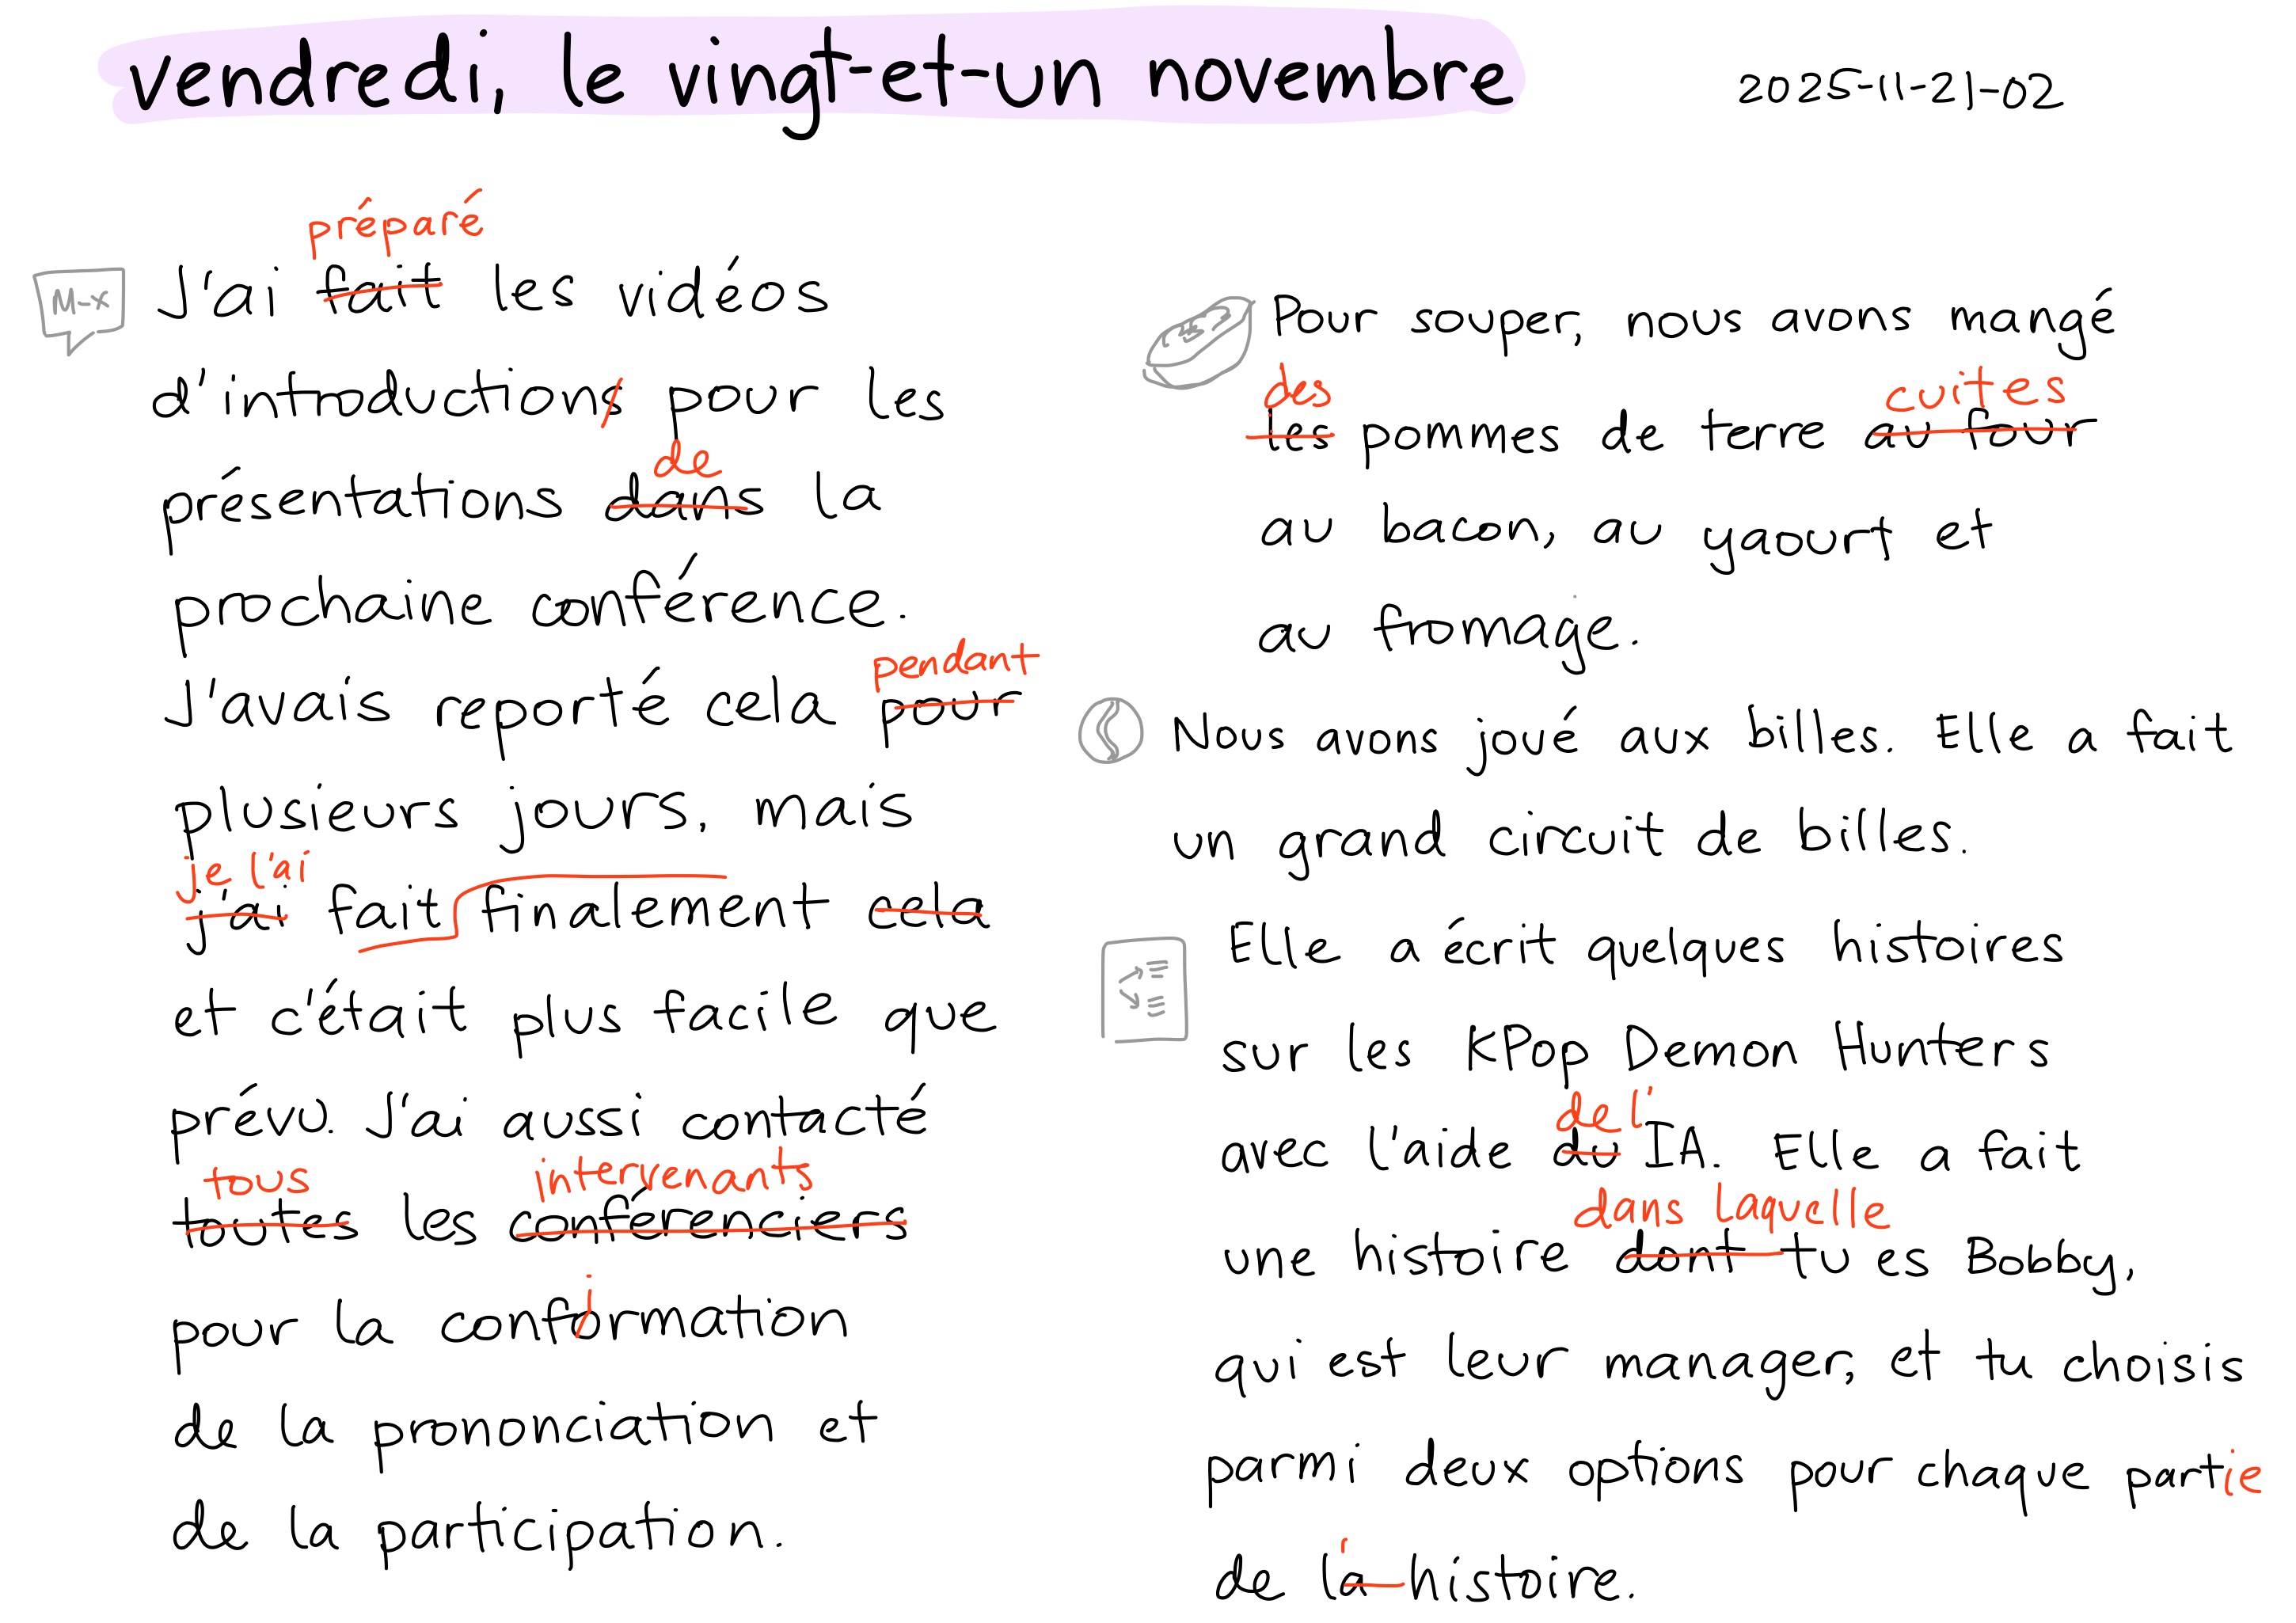 vendredi, le vingt-et-un novembre
2025-11-21-02
préparé
M-x
J'ai fait les vidéos
d'introductions pour les
de
présentations dans la
prochaine conférence.
pendant
J'avais reporté cela pour
plusieurs jours, mais
je l'ai
j'ai fait finalement cela
et c'était plus facile que
prévu. J'ai aussi contacté
tous intervenants
toutes les conférenciers
i
pour la conformation
de la prononciation et
de la participation.
Pour souper, nous avons mangé
des cuites
les pommes de terre au four
au bacon, au yaourt et
au fromage.
Nous avons joué aux billes. Elle a fait
un grand circuit de billes.
Elle a écrit quelques histoires
sur les KPop Demon Hunters
de l'
avec l'aide du IA. Elle a fait
dans laquelle
une histoire dont tu es Bobby,
qui est leur manager, et tu choisis
parmi deux options pour chaque partie
'
de la histoire.